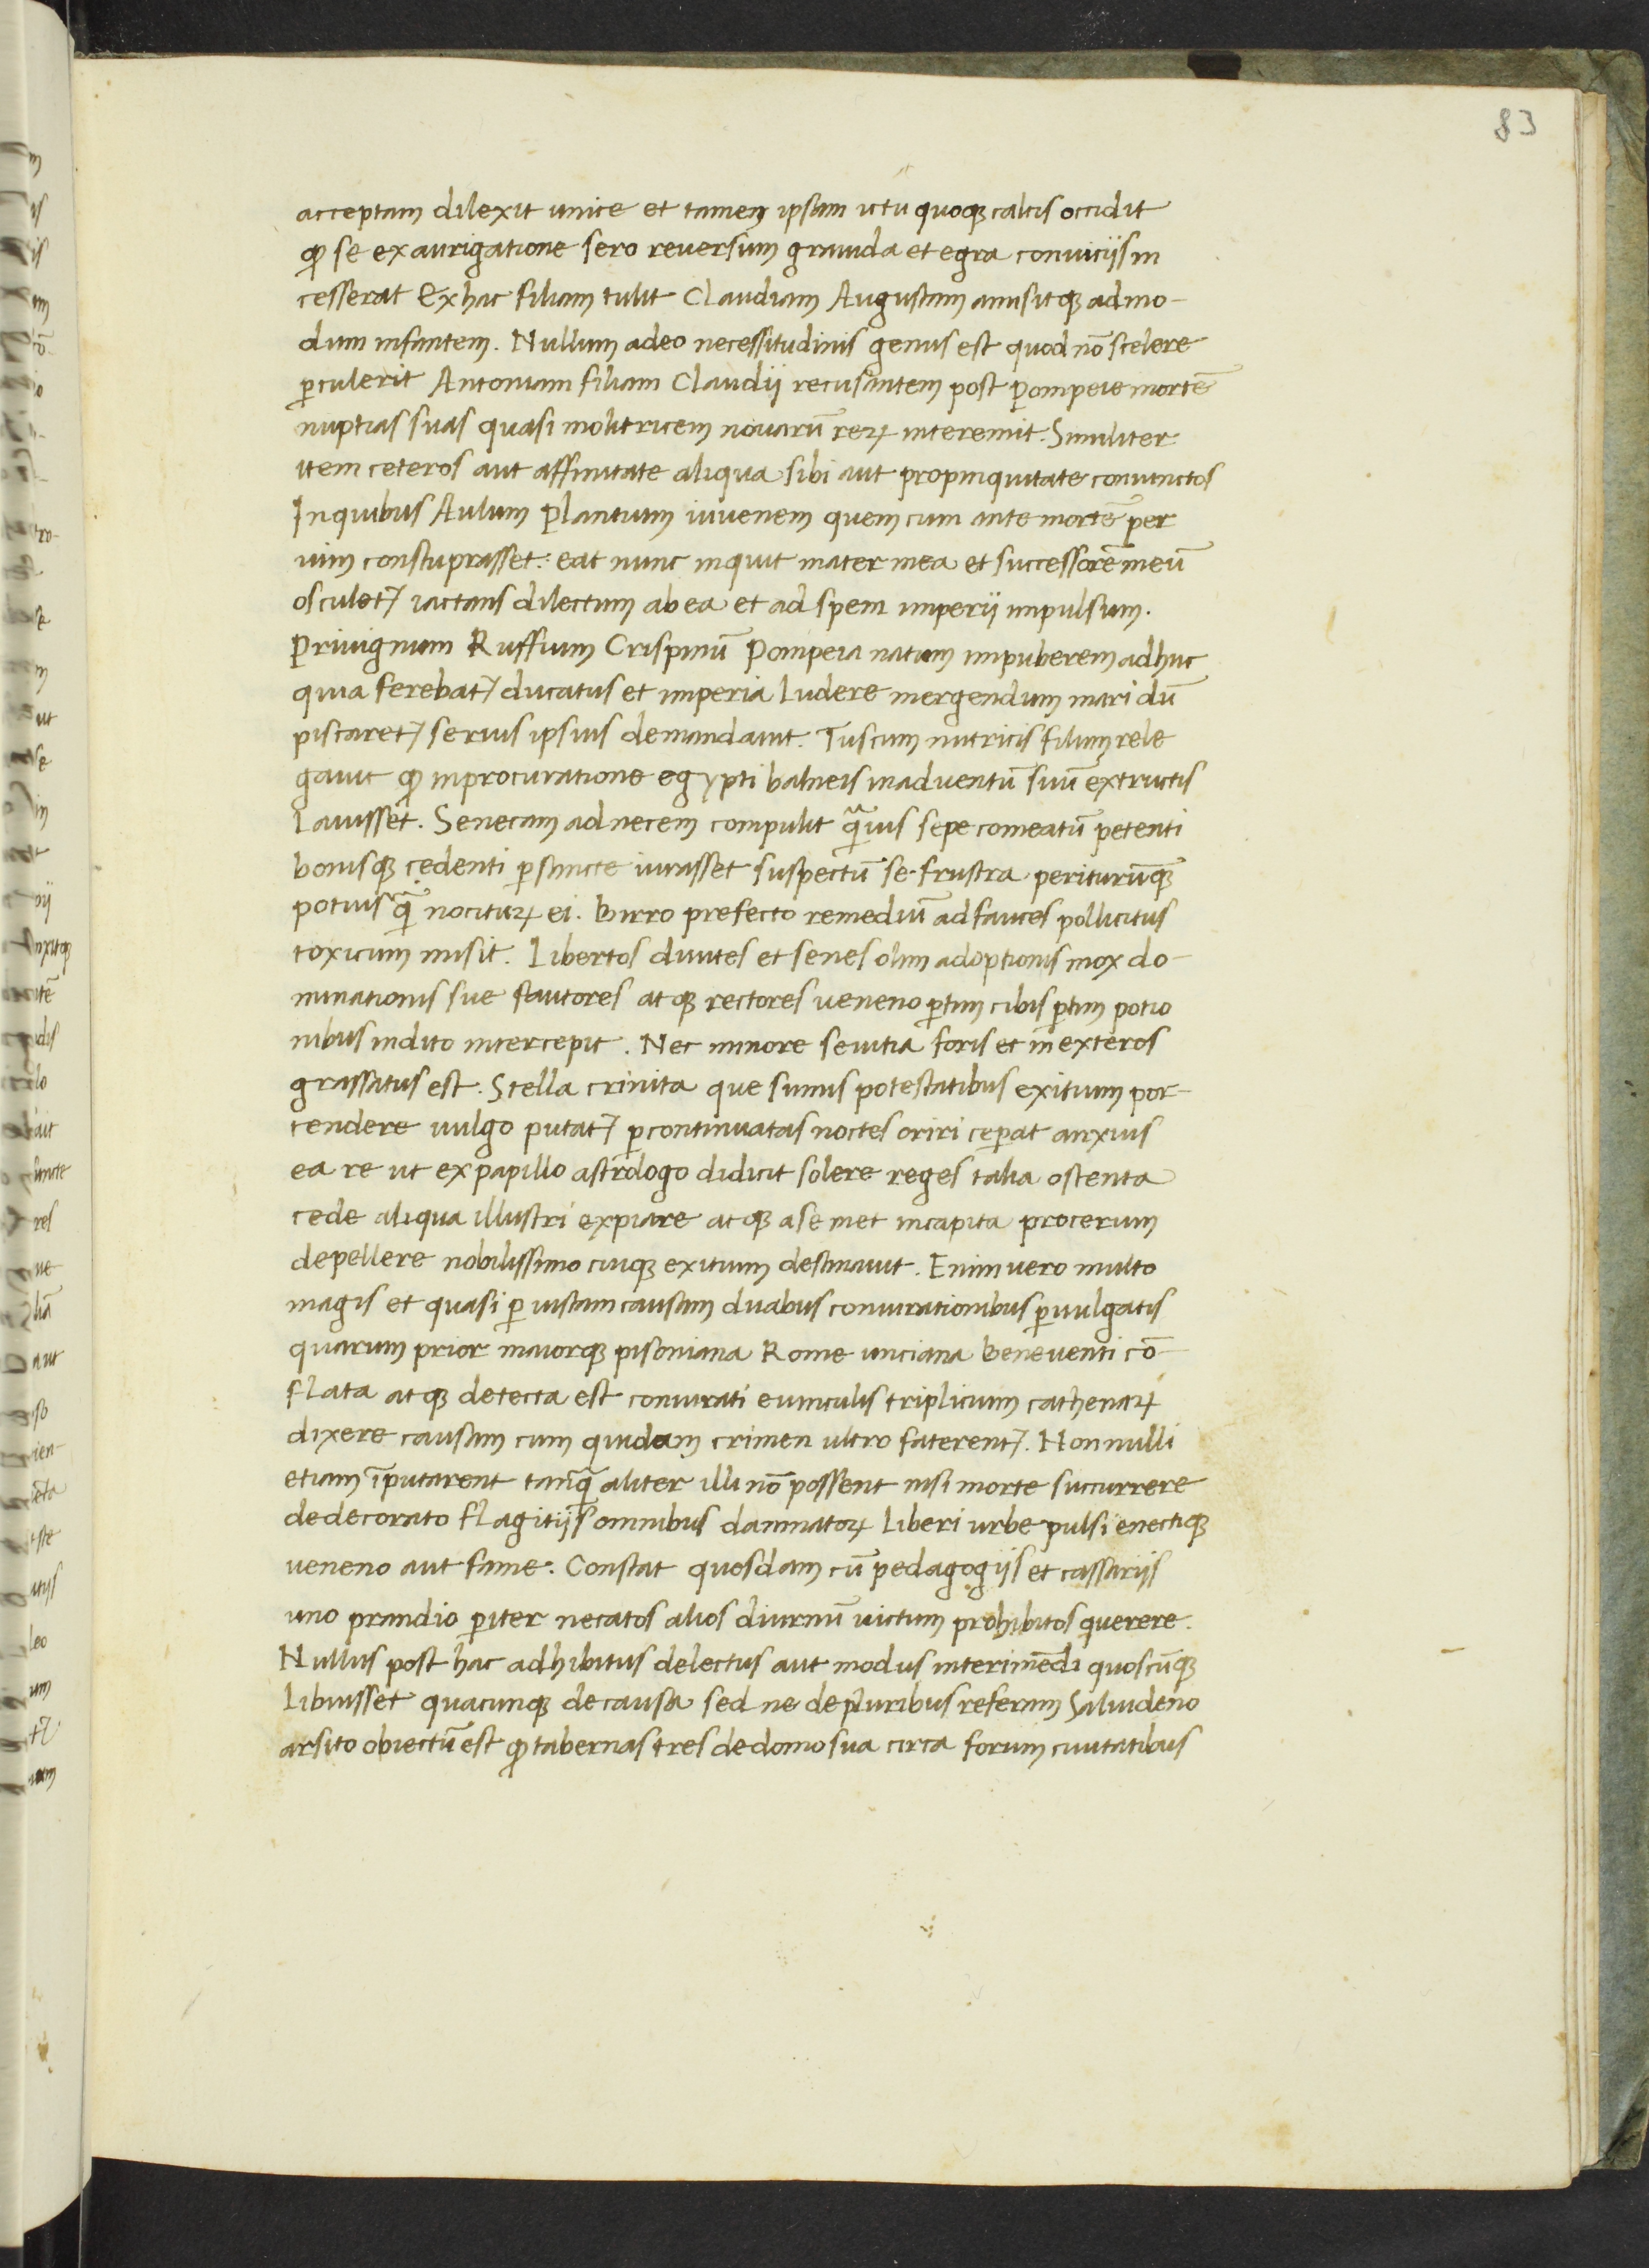 83
acceptam dilexit unice et tamen ipsam ictu quoqꝫ calcis occidit
ꝙ se ex aurigatione sero reuersum grauida et egra conuiciis in
cesserat Ex hac filiam tulit Claudiam Augustam amisitqꝫ admo-
dum infantem. Nullum adeo necessitudinis genus est quod nō scelere
ꝑculerit Antoniam filiam Claudij recusantem post Pompeie mortē
nuptias suas quasi molitricem nouarū reꝝ interemit. Similiter
item ceteros aut affinitate aliqua sibi aut propinquitate coniunctos
In quibus Aulum Plantium iuuenem quem cum ante mortē per
uim constuprasset: eat nunc inquit mater mea et successorē meū
osculet᷑ iactans dilectum ab ea et ad spem imperij impulsum.
Priuignum Ruffium Crispinū Pompeia natum impuberem adhuc
quia ferebat᷑ ducatus et imperia ludere mergendum mari dū
piscaret᷑ seruis ipsius demandauit. Tuscum nutricis filium rele
gauit ꝙ in procuratione egypti balneis in aduentū suū extructis
lauisset. Senecam ad necem compulit qᷓuis sepe comeatū petenti
bonisqꝫ cedenti ꝑsancte iurasset suspectū se frustra periturūqꝫ
potius qᷓ nocituꝝ ei. Burro prefecto remediū ad fauces pollicitus
toxicum misit. Libertos diuites et senes olim adoptionis mox do-
minationis sue fautores atqꝫ rectores ueneno ꝑtim cibis ꝑtim potio
nibus indito intercepit. Nec minore seuitia foris et in exteros
grassatus est. Stella crinita que sumis potestatibus exitium por-
tendere uulgo putat᷑ ꝑ continuatas noctes oriri ceꝑat anxius
ea re ut ex papillo astrologo didicit solere reges talia ostenta
cede aliqua illustri expiare atqꝫ a semet in capita procerum
depellere nobilissimo cuiqꝫ exitium destinauit. Enimuero multo
magis et quasi ꝑ iustam causam duabus coniurationibus ꝑuulgatis
quarum prior maiorqꝫ pisoniana Rome uinciana Beneuenti cō
flata atqꝫ detecta est coniurati e uinculis triplicium cathenaꝝ
dixere causam cum quidam crimen ultro faterent᷑. Nonnulli
etiam īputarent tanqᷓ aliter illi nō possent nisi morte succurrere
dedecorato flagitijs omnibus damnatoꝝ liberi urbe pulsi enectiqꝫ
ueneno aut fame. Constat quosdam cū pedagogijs et cassarijs
uno prandio ꝑiter necatos alios diurnū uictum prohibitos querere.
Nullus post hac adhibitus delectus aut modus interimēdi quoscūqꝫ
libuisset quacunqꝫ de causa sed ne de pluribus referam Saluideno
arsito obiectū est ꝙ tabernas tres de domo sua circa forum ciuitatibus